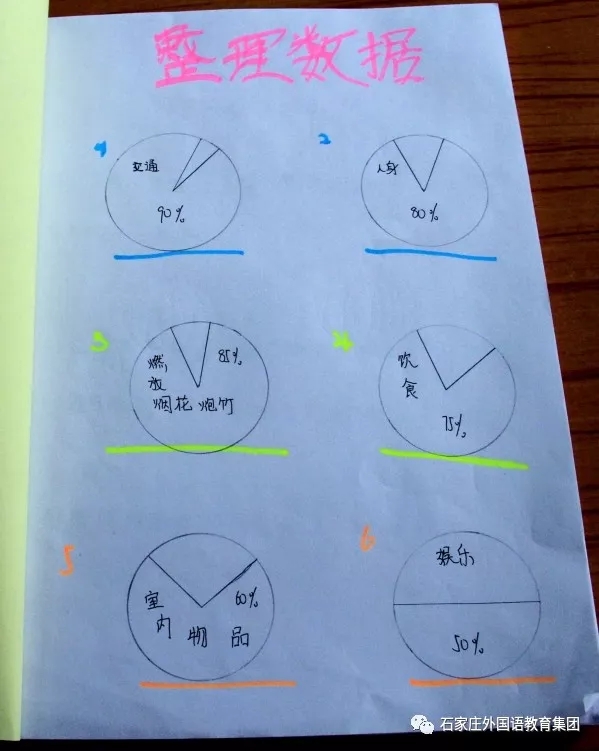 整理数据
1
交通
90%
2
人身
80%
3
燃放
烟花炮竹
85%
4
饮食
75%
5
室内物品
60%
6
娱乐
50%
石家庄外国语教育集团